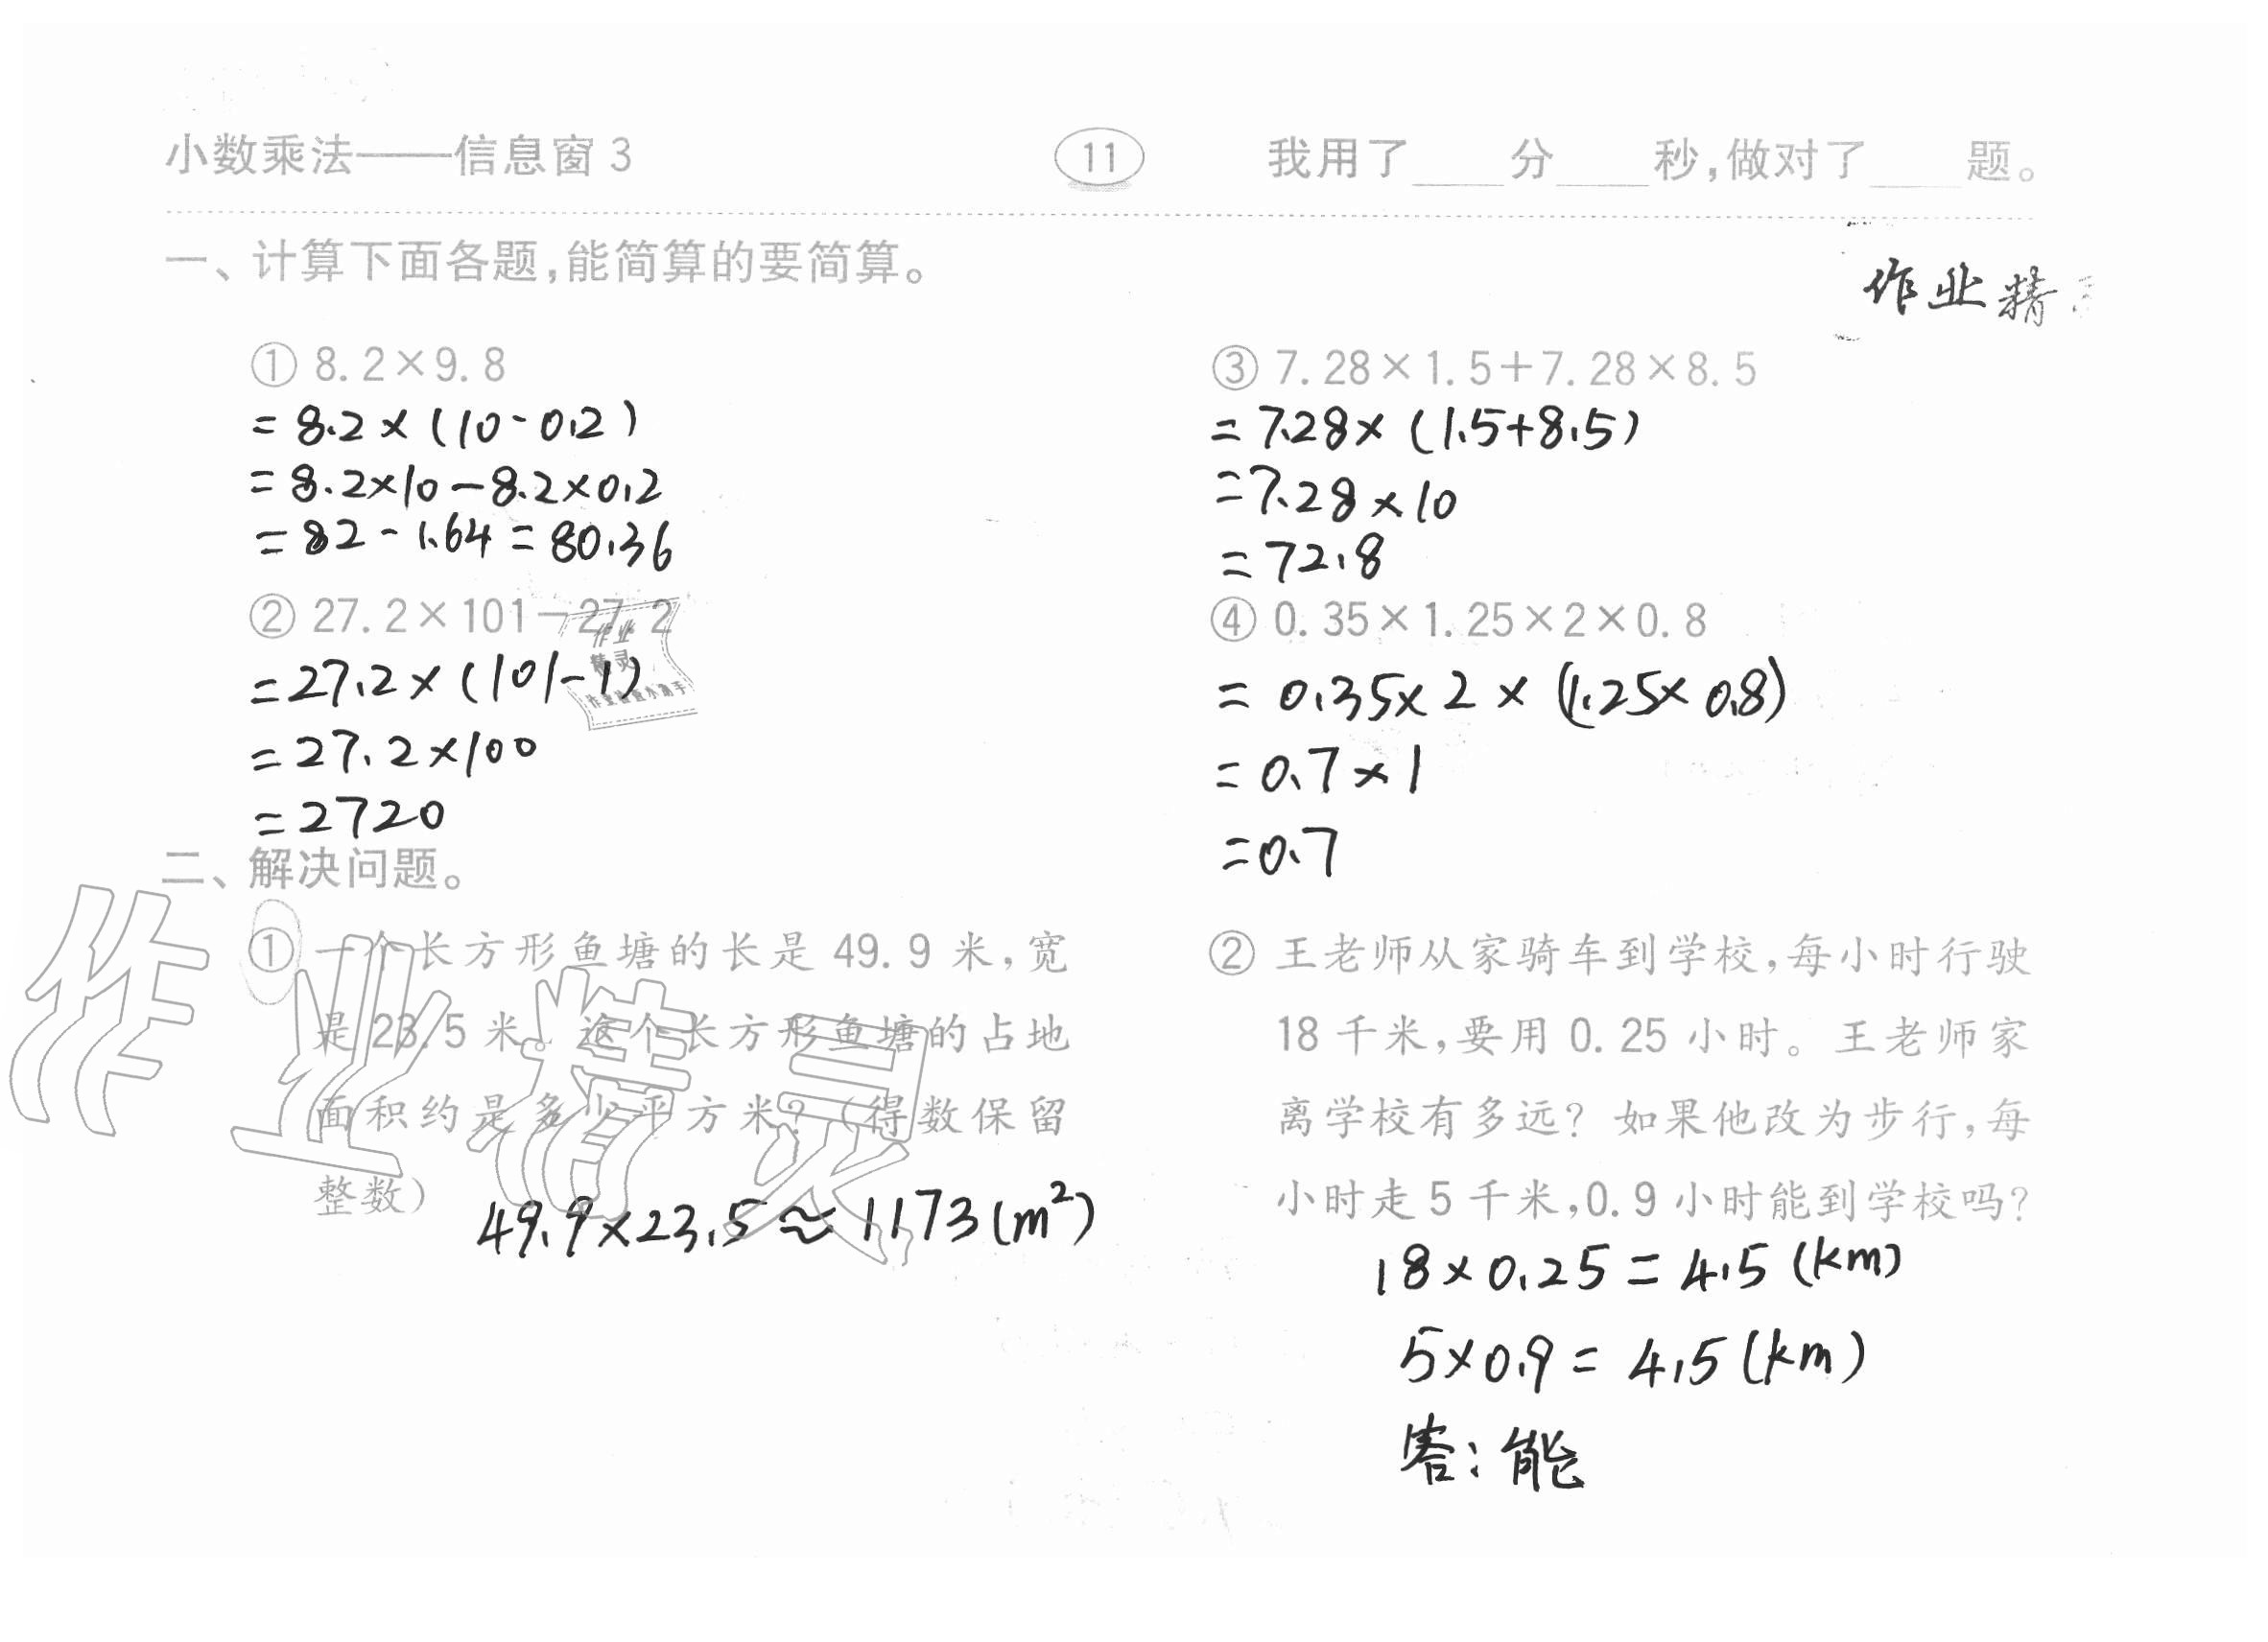 小数乘法——信息窗3 11 我用了____分____秒,做对了____题。
一、计算下面各题,能简算的要简算。
作业精
① 8.2×9.8
=8.2×(10-0.2)
=8.2×10-8.2×0.2
=82-1.64=80.36
② 27.2×101-27.2
=27.2×(101-1)
=27.2×100
=2720
③ 7.28×1.5+7.28×8.5
=7.28×(1.5+8.5)
=7.28×10
=72.8
④ 0.35×1.25×2×0.8
=0.35×2×(1.25×0.8)
=0.7×1
=0.7
作业
精灵
二、解决问题。
① 一个长方形鱼塘的长是49.9米,宽
是23.5米。这个长方形鱼塘的占地
面积约是多少平方米?(得数保留
整数)
49.9×23.5≈1173(m²)
② 王老师从家骑车到学校,每小时行驶
18千米,要用0.25小时。王老师家
离学校有多远?如果他改为步行,每
小时走5千米,0.9小时能到学校吗?
18×0.25=4.5(km)
5×0.9=4.5(km)
答:能
作业精灵